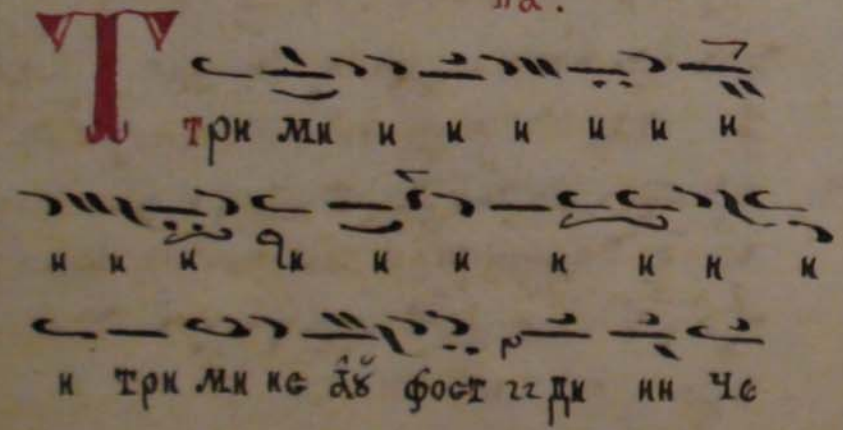 па.
Т три ми и и и и и и
и и и чи и и и и и и
и три ми не а҆ꙋ фост ггди ин че